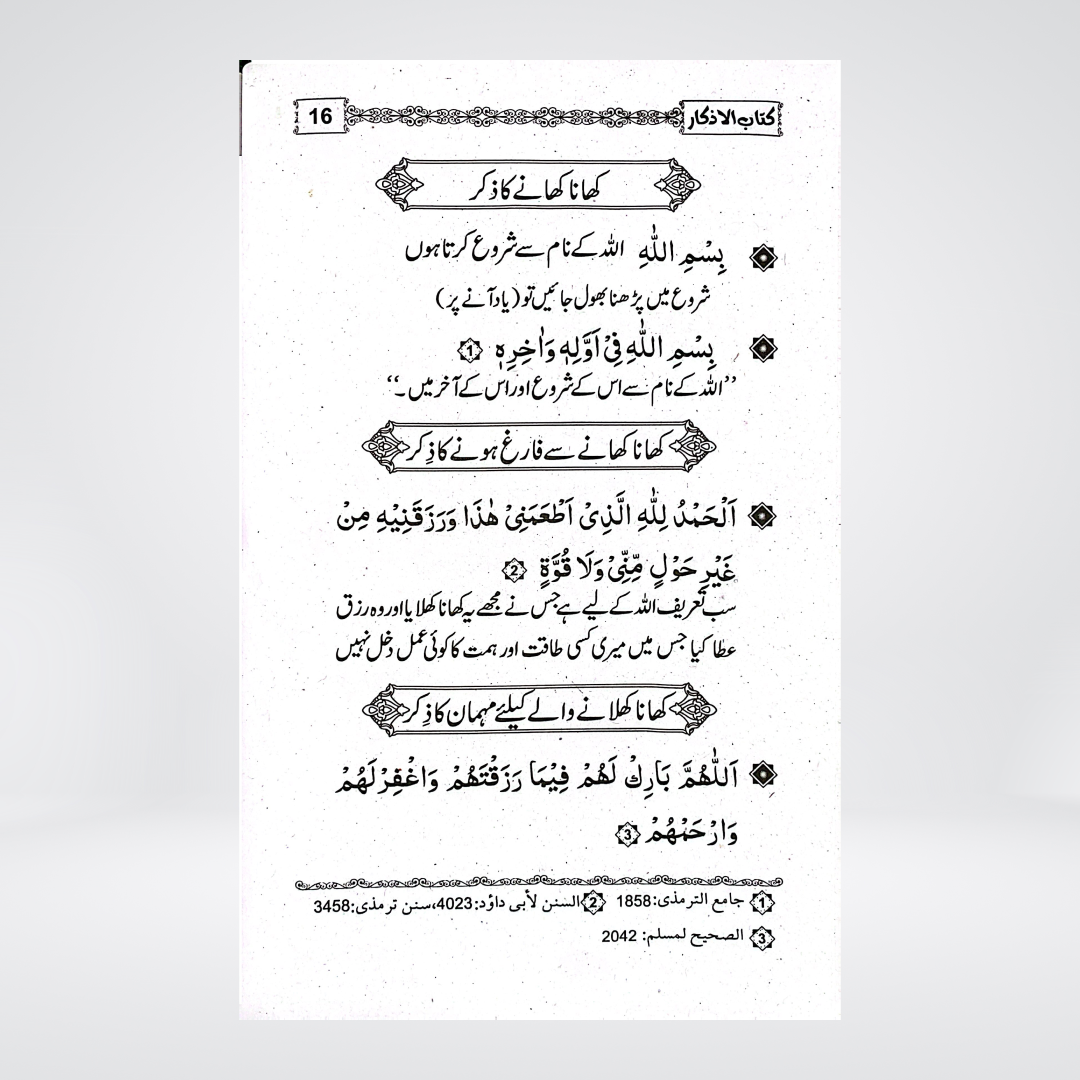 کتاب الاذکار 16
کھانا کھانے کا ذکر
بِسْمِ اللّٰهِ اللہ کے نام سے شروع کرتا ہوں
شروع میں پڑھنا بھول جائیں تو (یاد آنے پر)
بِسْمِ اللّٰهِ فِیْ اَوَّلِهٖ وَاٰخِرِهٖ 1
’’اللہ کے نام سے اس کے شروع اور اس کے آخر میں۔‘‘
کھانا کھانے سے فارغ ہونے کا ذِکر
اَلْحَمْدُ لِلّٰهِ الَّذِیْ اَطْعَمَنِیْ هٰذَا وَرَزَقَنِیْهِ مِنْ
غَیْرِ حَوْلٍ مِّنِّیْ وَلَا قُوَّةٍ 2
سب تعریف اللہ کے لیے ہے جس نے مجھے یہ کھانا کھلایا اور وہ رزق
عطا کیا جس میں میری کسی طاقت اور ہمت کا کوئی عمل دخل نہیں
کھانا کھلانے والے کیلئے مہمان کا ذِکر
اَللّٰهُمَّ بَارِكْ لَهُمْ فِیْمَا رَزَقْتَهُمْ وَاغْفِرْ لَهُمْ
وَارْحَمْهُمْ 3
1 جامع الترمذی: 1858 2 السنن لأبی داؤد: 4023، سنن ترمذی: 3458
3 الصحیح لمسلم: 2042